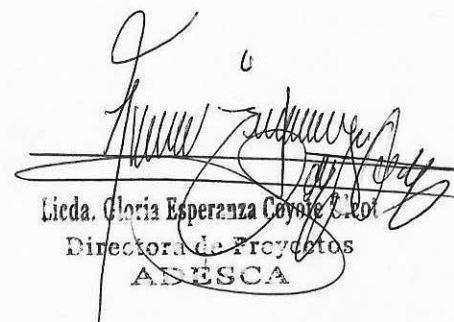 Licda. Gloria Esperanza Coyote
Directora de Proyectos
ADESCA